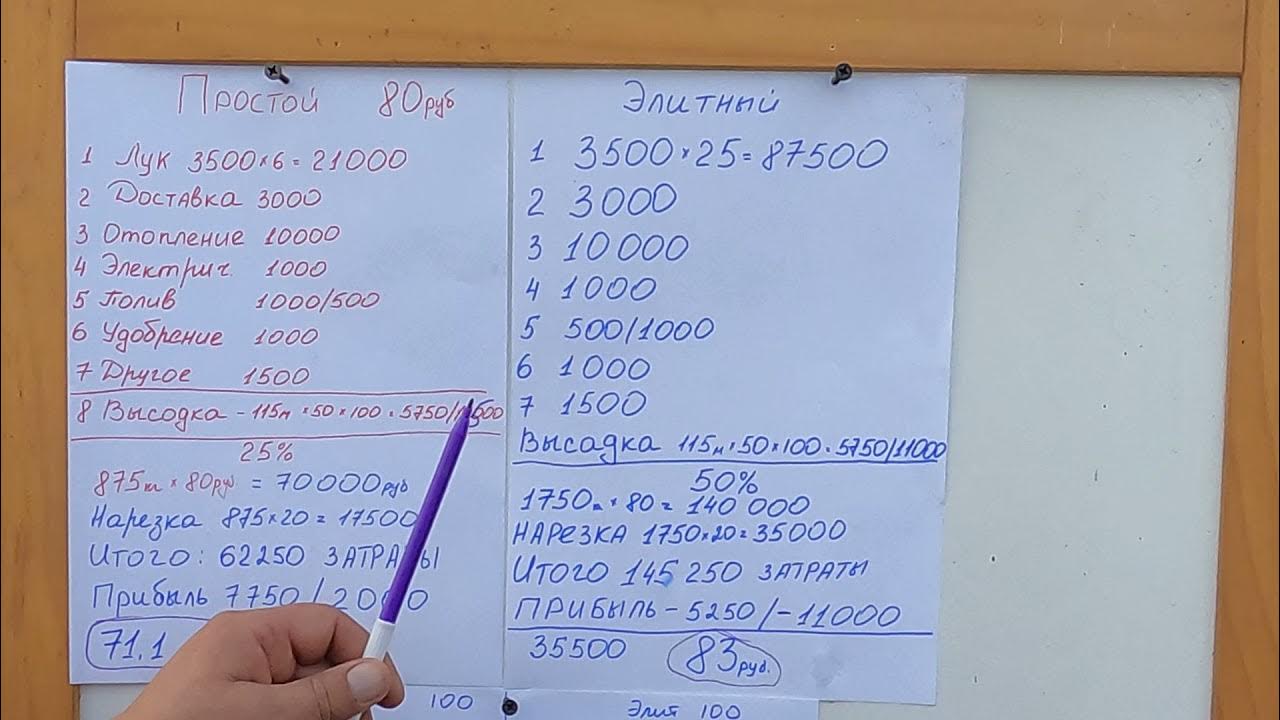 Простой 80руб
1 Лук 3500×6=21000
2 Доставка 3000
3 Отопление 10000
4 Электрич. 1000
5 Полив 1000/500
6 Удобрение 1000
7 Другое 1500
8 Высодка - 115м ×50×100.5750/11500
25%
875кг × 80руб = 70000руб
Нарезка 875×20=17500
Итого: 62250 ЗАТРАТЫ
Прибыль 7750/2000
71.1
100
Элитный
1 3500×25=87500
2 3000
3 10000
4 1000
5 500/1000
6 1000
7 1500
Высадка 115м×50×100.5750/11000
50%
1750кг × 80= 140 000
НАРЕЗКА 1750×20=35000
Итого 145 250 ЗАТРАТЫ
ПРИБЫЛЬ - 5250/-11000
35500 83руб.
Элит 100